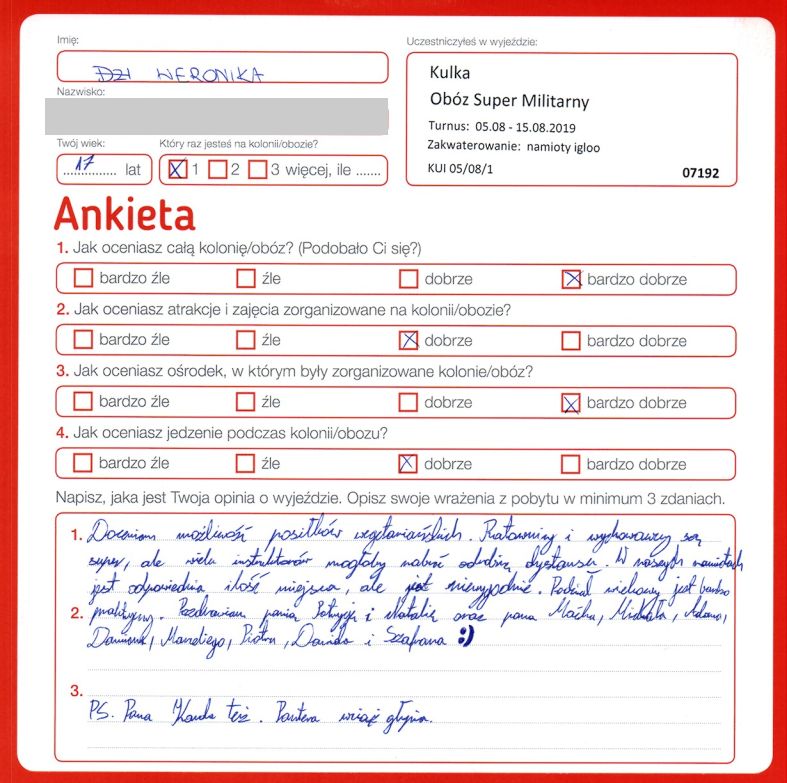 Imię:
WERONIKA
Nazwisko:
Twój wiek:
17 lat
Który raz jesteś na kolonii/obozie?
1 2 3 więcej, ile .......
Uczestniczyłeś w wyjeździe:
Kulka
Obóz Super Militarny
Turnus: 05.08 - 15.08.2019
Zakwaterowanie: namioty igloo
KUI 05/08/1 07192
Ankieta
1. Jak oceniasz całą kolonię/obóz? (Podobało Ci się?)
bardzo źle źle dobrze bardzo dobrze
2. Jak oceniasz atrakcje i zajęcia zorganizowane na kolonii/obozie?
bardzo źle źle dobrze bardzo dobrze
3. Jak oceniasz ośrodek, w którym były zorganizowane kolonie/obóz?
bardzo źle źle dobrze bardzo dobrze
4. Jak oceniasz jedzenie podczas kolonii/obozu?
bardzo źle źle dobrze bardzo dobrze
Napisz, jaka jest Twoja opinia o wyjeździe. Opisz swoje wrażenia z pobytu w minimum 3 zdaniach.
1. Doceniam możliwość posiłków wegetariańskich. Ratownicy i wychowawcy są
super, ale wielu instruktorów mogłoby nabrać odrobinę dystansu. W naszych namiotach
jest odpowiednia ilość miejsca, ale jest niewygodnie. Podział wiekowy jest bardzo
2. praktyczny. Pozdrawiam panią Patrycję i Natalię oraz pana Maćka, Michała, Adama,
Damiana, Marcelego, Piotra, Dawida i Szafrana :)
3.
PS. Pana Karola też. Pantera wciąż głupia.